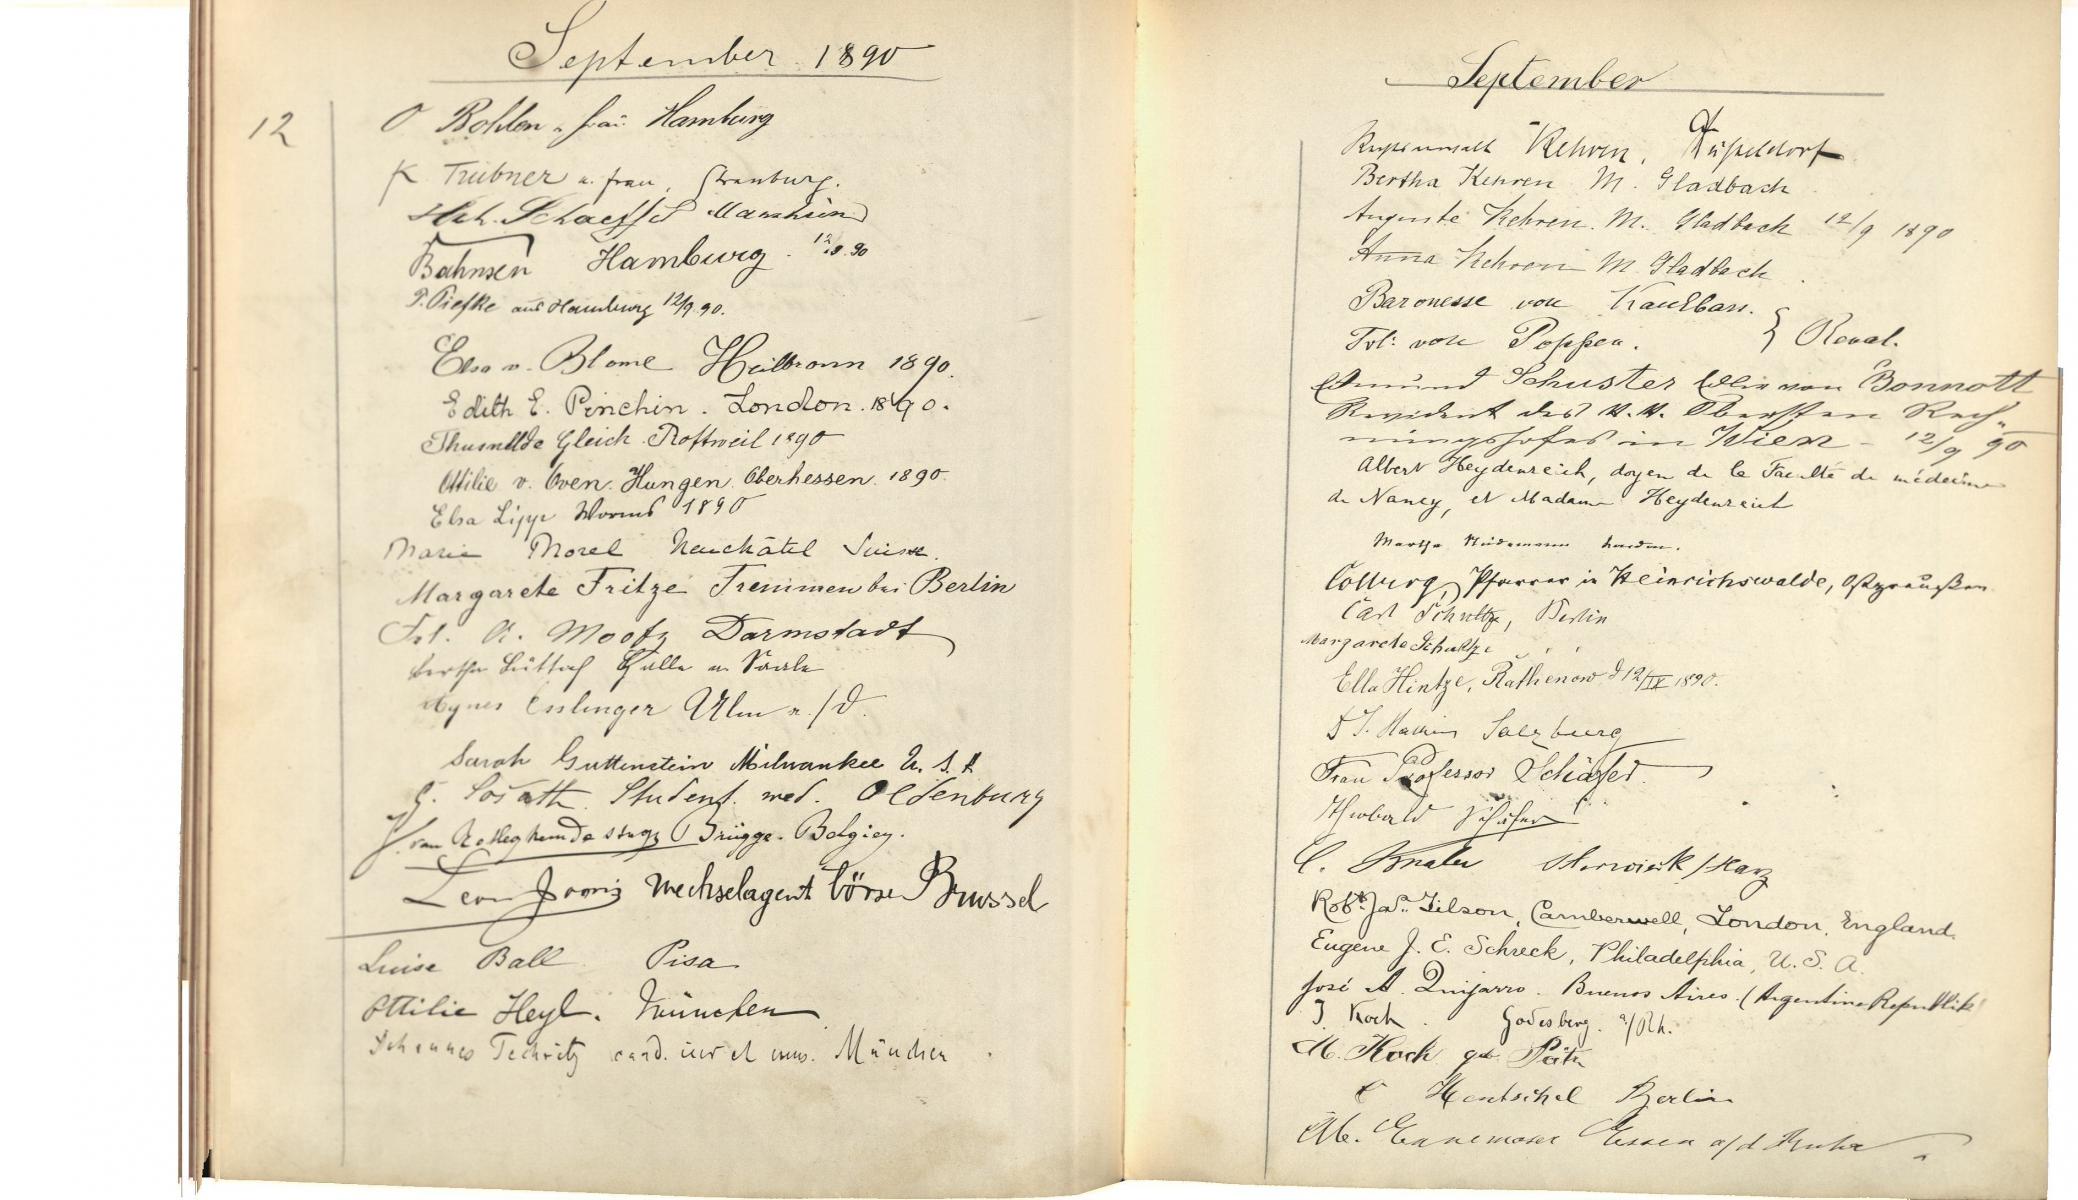 September 1890
12
O Bohlen u. frau Hamburg
K Trübner u. frau, Strassburg.
Hch. Schaeffel Mannheim
Bahnsen Hamburg. 12.9.90
P. Piefke aus Hamburg 12/9 90.
Elsa v. Blome Heilbronn 1890.
Edith E. Pinchin. London. 1890.
Thusnelde Gleich. Rottweil 1890
Ottilie v. Oven. Hungen. Oberhessen. 1890.
Elsa Lipp Worms 1890
Marie Morel Neuchâtel Suisse.
Margarete Fritze Tremmen bei Berlin
Frl. A. Darmstadt
Bertha Halle a. Saale
Agnes Esslinger Ulm a./d.
Sarah Guttenstein Milwaukee U. S. A
G. Student. med. Oldenburg
van Brügge. Belgien.
Leon Wechselagent börse Brussel
Luise Ball Pisa
Ottilie Heyl. München
Johannes cand. München
September
Rechtsanwalt Kehren, Düsseldorf
Bertha Kehren M. Gladbach
Auguste Kehren. M. Gladbach 12/9 1890
Anna Kehren M. Gladbach
Baronesse von Kaulbars.
Frl: von Poppen. } Reval.
Edmund Schuster Edler von Bonnott
Revident des K. K. Obersten Rech„
nungshofes in Wien - 12/9 90
Albert Heydenreich, doyen de la Faculté de médecine
de Nancy, et Madame Heydenreich
Martha
Coburg, Pfarrer in Heinrichswalde, Ostpreußen
Carl Schultze, Berlin
Margarete Schultze „ „
Ella Hintze, Rathenow d 12/IX 1890.
Salzburg
Frau Professor Schäfer.
Theobald Schäfer
C. Osterwieck/Harz
Robt. Jas. Tilson, Camberwell, London, England.
Eugene J. E. Schreck, Philadelphia, U. S. A.
José A. Quijarro. Buenos Aires. (Argentine Republik)
J. Koch. Godesberg. a/Rh.
M. Koch geb.
C Hentschel Berlin
M. Ennemoser Essen a/d Ruhr